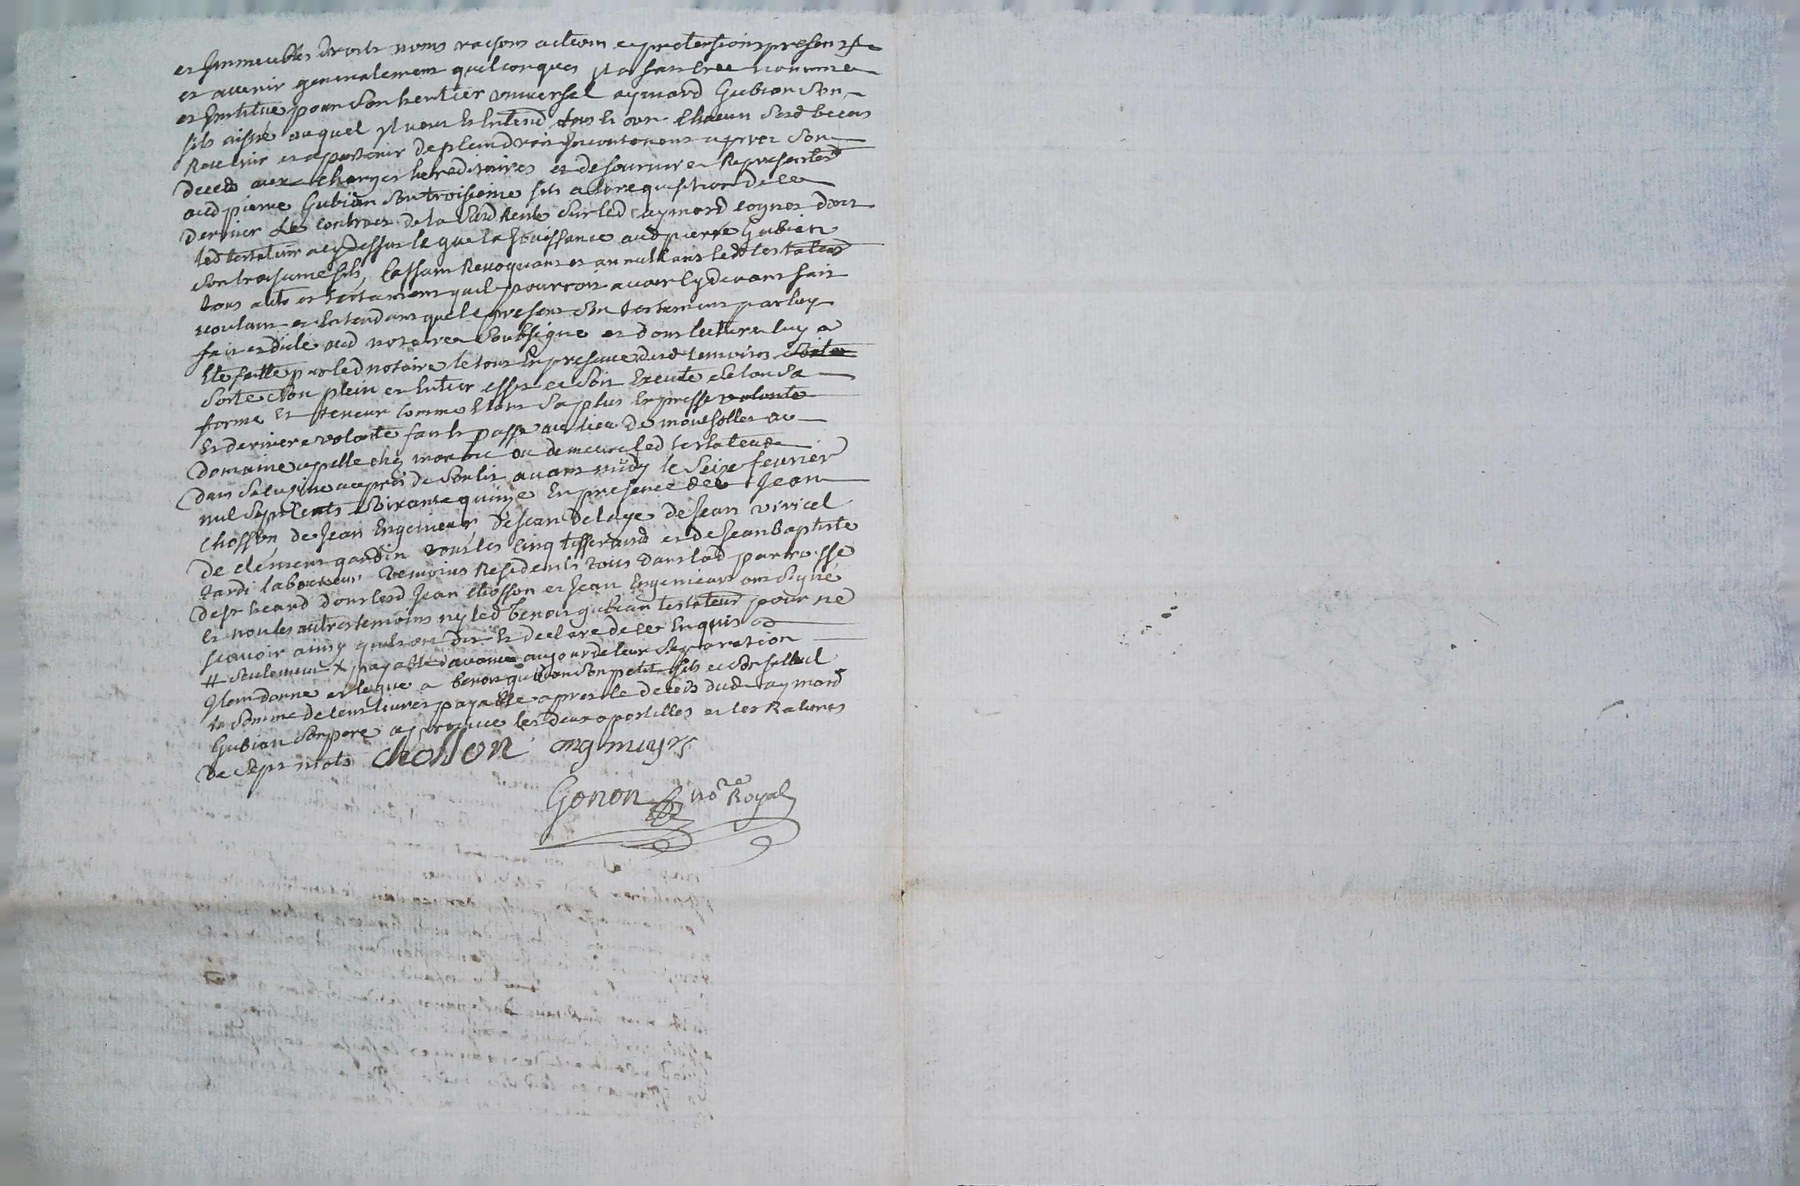 et Immeubles droits noms raisons actions et pretensions presents
et avenir generalement quelconques Il a fait Cree nommé
et Institué pour son heritier universel aymard Gubian son
fils aisné auquel Il veut et Entend tous biens
Revenir et apartenir de plein droit Incontinent apres son
deceds aux charges hereditaires et de fournir et Representer
aud pierre Gubian son troisieme fils a la requisition de ce
dernier Les contracts de la Rente sur led aymard dont
led testateur a cy dessus legué la Jouissance aud pierre Gubian
son troisieme fils, Cassant Revoquant et annullant led testateur
tous autres testament quil pourroit avoir cy devant fait
voulant et Entendant que le present son testament par luy
fait et dicté aud notaire soubsigné et dont lecture luy a
Eté faitte par led notaire le tout En presence desd temoins
sorte son plein et Entier effet et soit Executé selon sa
forme et teneur comme Etant sa plus Expresse volonté
Et derniere volonté fait et passé au lieu de
domaine apellé chez ou demeure led testateur
dans sa cuisine aupres de son lit avant midy le seize fevrier
mil sept cents soixante quinze En presence de Jean
Chosson de Jean Engenieur de Jean Delaye de Jean viricel
de clement gardin tous les cinq tisserand et de Jean Baptiste
tardi laboureur temoins Residents tous dans lad parroisse
de st heand dont lesd Jean Chosson et Jean Engenieur ont signé
et non les autres temoins ny led benoit gubian testateur pour ne
scavoir ainsy quils ont dit et declaré de ce Enquis
# seulement X payable davance au jour de leur separation
Item donne et legue a benoit gubian son petit fils et son filleul
la somme de cent livres payable apres le deceds dud aymard
Gubian son pere approuve les deux apostilles et les Ratures
de sept mots Chosson
Gonon no.re Royal